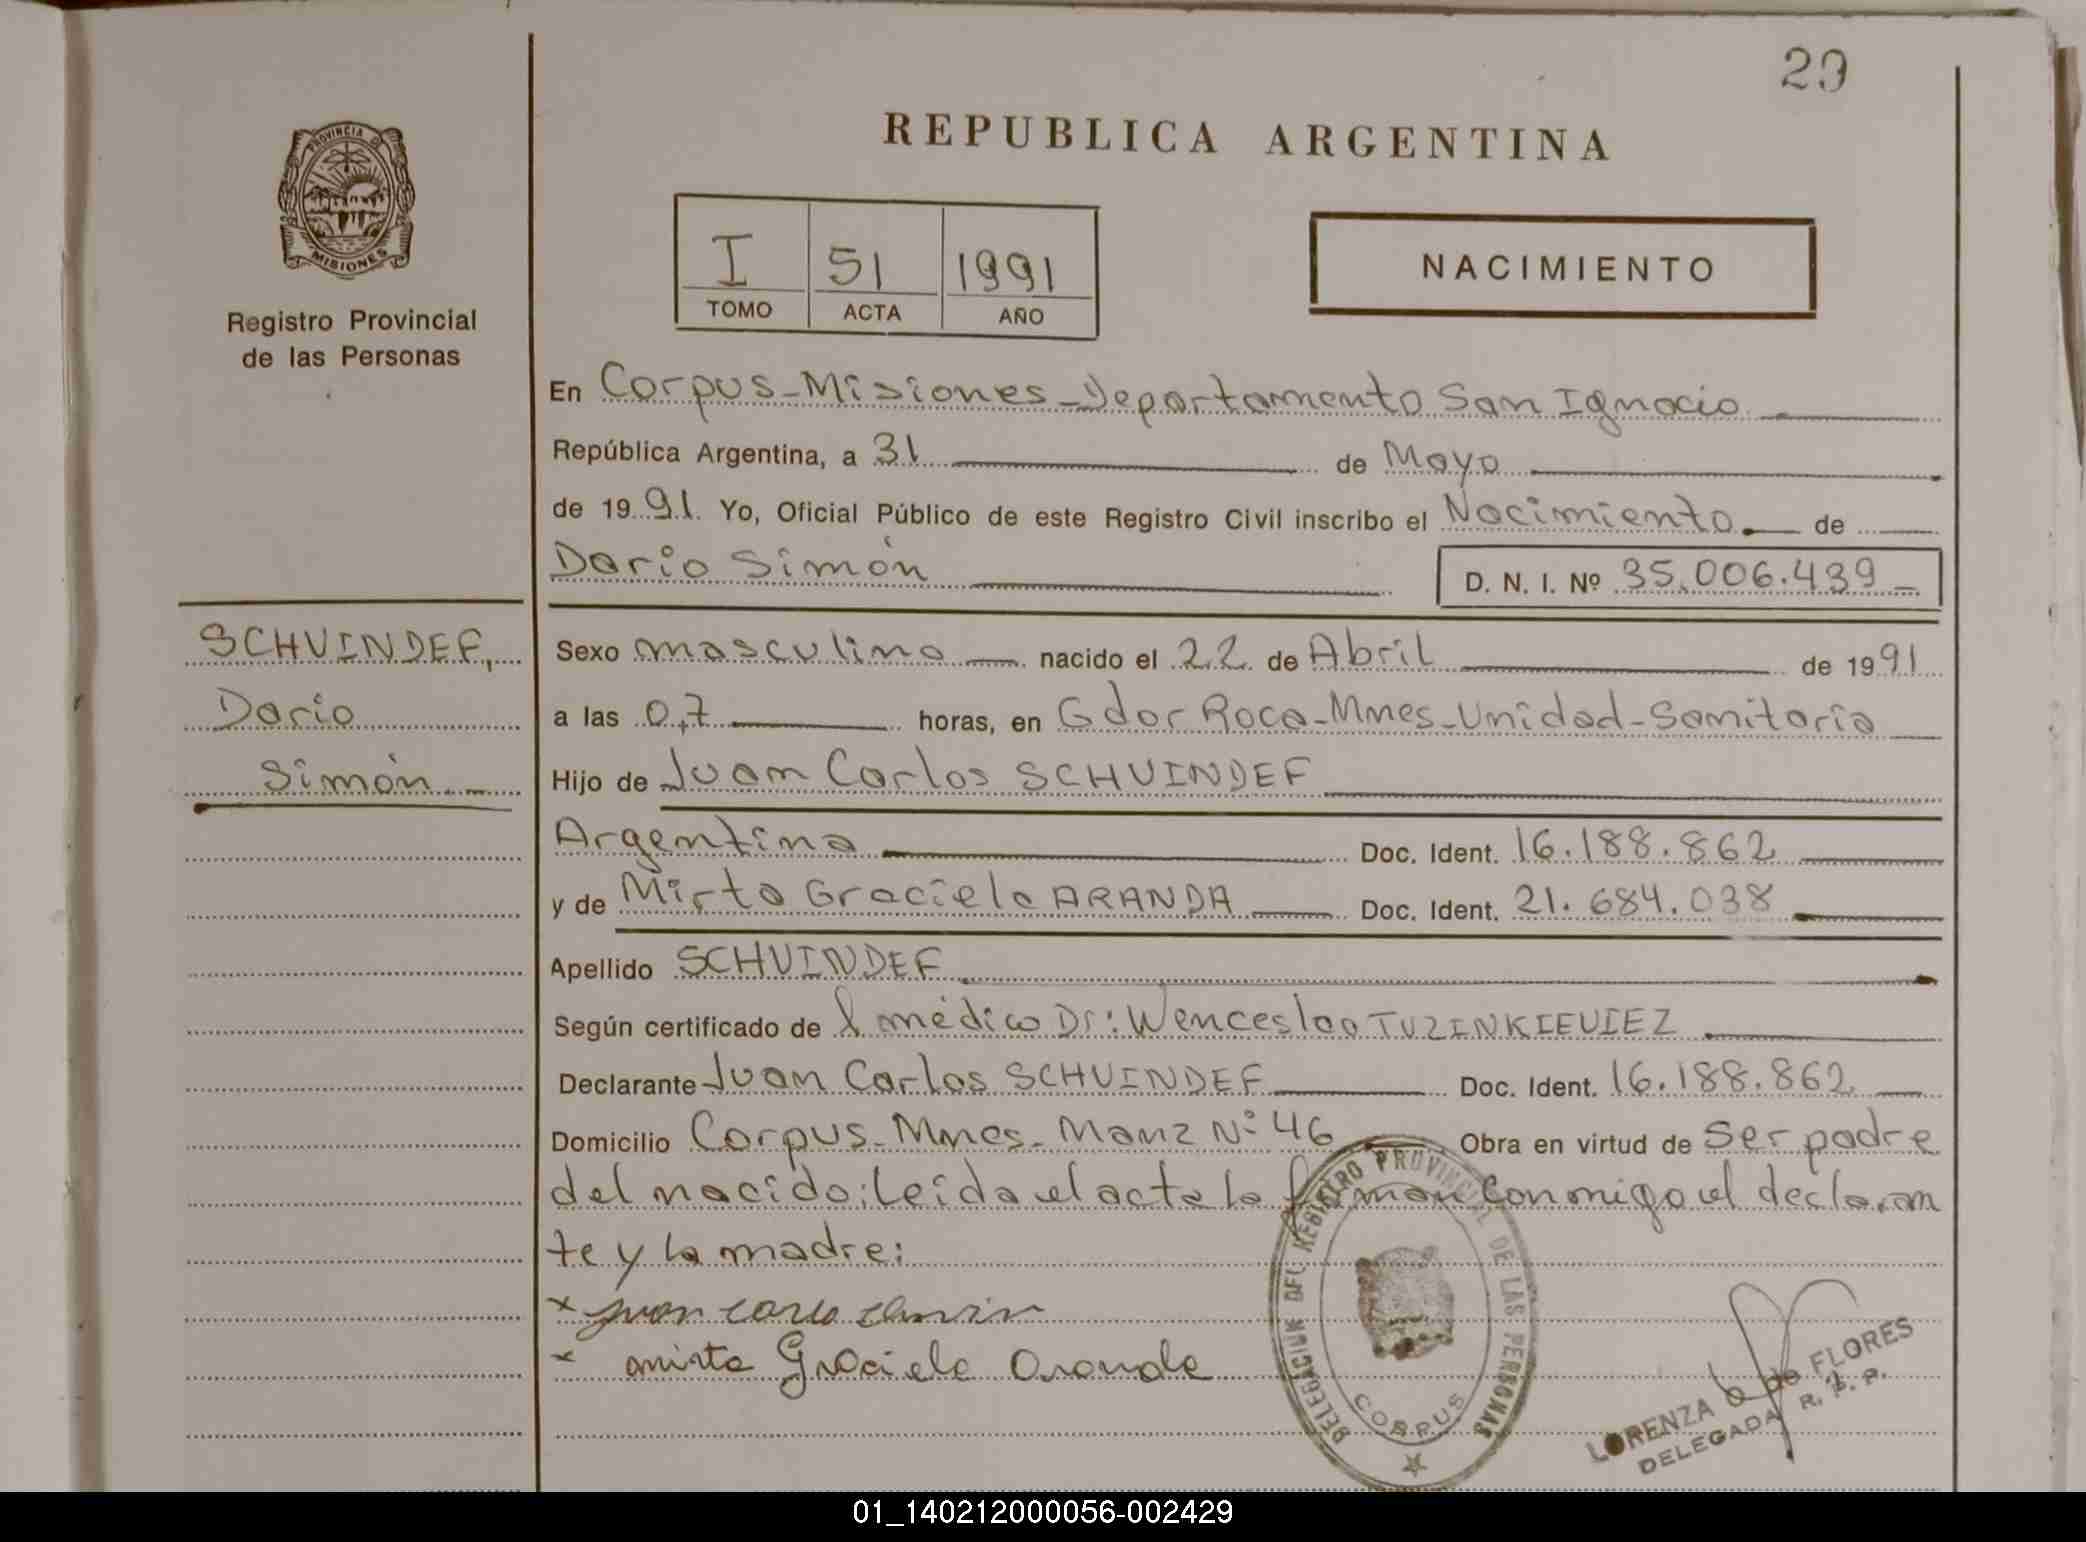 29
REPUBLICA ARGENTINA
PROVINCIA D
MISIONES
Registro Provincial
de las Personas
I 51 1991
TOMO ACTA AÑO
NACIMIENTO
En Corpus-Misiones-Departamento San Ignacio
República Argentina, a 31 de Mayo
de 1991 Yo, Oficial Público de este Registro Civil inscribo el Nacimiento de
Dario Simón
D. N. I. Nº 35.006.439
SCHVINDEF,
Dario
Simón
Sexo masculino nacido el 22 de Abril de 1991
a las 07 horas, en Gdor Roca-Mnes-Unidad-Sanitaria
Hijo de Juan Carlos SCHVINDEF
Argentina Doc. Ident. 16.188.862
y de Mirta Graciela ARANDA Doc. Ident. 21.684.038
Apellido SCHVINDEF
Según certificado de l médico Dr: Wenceslao TUZINKIEVIEZ
Declarante Juan Carlos SCHVINDEF Doc. Ident. 16.188.862
Domicilio Corpus-Mnes-Manz Nº 46 Obra en virtud de Ser padre
del nacido: Leída el acta la firman conmigo el declaran
te y la madre:
x Juan Carlo
x mirta Graciela Aranda
DELEGACION DEL REGISTRO PROVINCIAL DE LAS PERSONAS
CORPUS
LORENZA de FLORES
DELEGADA R. P. P.
01_140212000056-002429